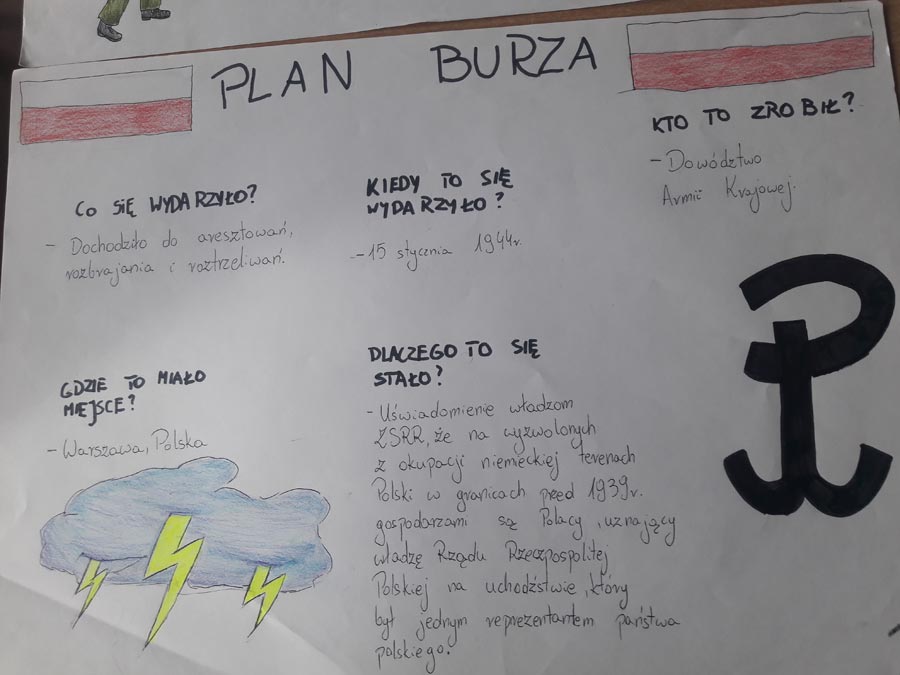 PLAN BURZA
KTO TO ZROBIŁ?
- Dowództwo
Armii Krajowej.
CO SIĘ WYDARZYŁO?
- Dochodziło do aresztowań,
rozbrajania i roztrzeliwań.
KIEDY TO SIĘ
WYDARZYŁO?
- 15 stycznia 1944r.
GDZIE TO MIAŁO
MIEJSCE?
- Warszawa, Polska
DLACZEGO TO SIĘ
STAŁO?
- Uświadomienie władzom
ZSRR, że na wyzwolonych
z okupacji niemieckiej terenach
Polski w granicach pred 1939r.
gospodarzami są Polacy, uznający
władzę Rządu Rzeczpospolitej
Polskiej na uchodźstwie, który
był jednym reprezentantem państwa
polskiego.